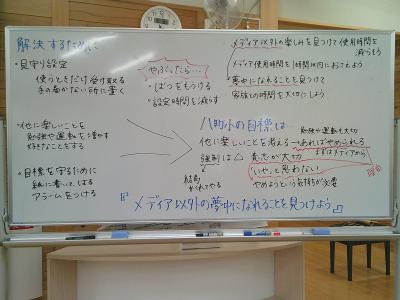 解決するために
・見守り設定
使うときだけ受け取る
手の届かない所に置く
・他に楽しいことを
勉強や運動を増やす
好きなことをする
・目標を守るために
紙に書いて、はる
アラームをつける
やぶったら…
・ばつをもうける
・設定時間を減らす
メディア以外の楽しみを見つけて使用時間を
減らそう
メディア使用時間を1時間以内におさえよう
夢中になれることを見つけて
家族との時間を大切にしよう
八町小の目標は
勉強や運動も大切
他に楽しいことを考える→あればやめられる
まずはメディアから
強制は△
意志が大切
結局
かくれてやる
「いや」と思わない
やめようという気持ちが必要
『メディア以外の夢中になれることを見つけよう』